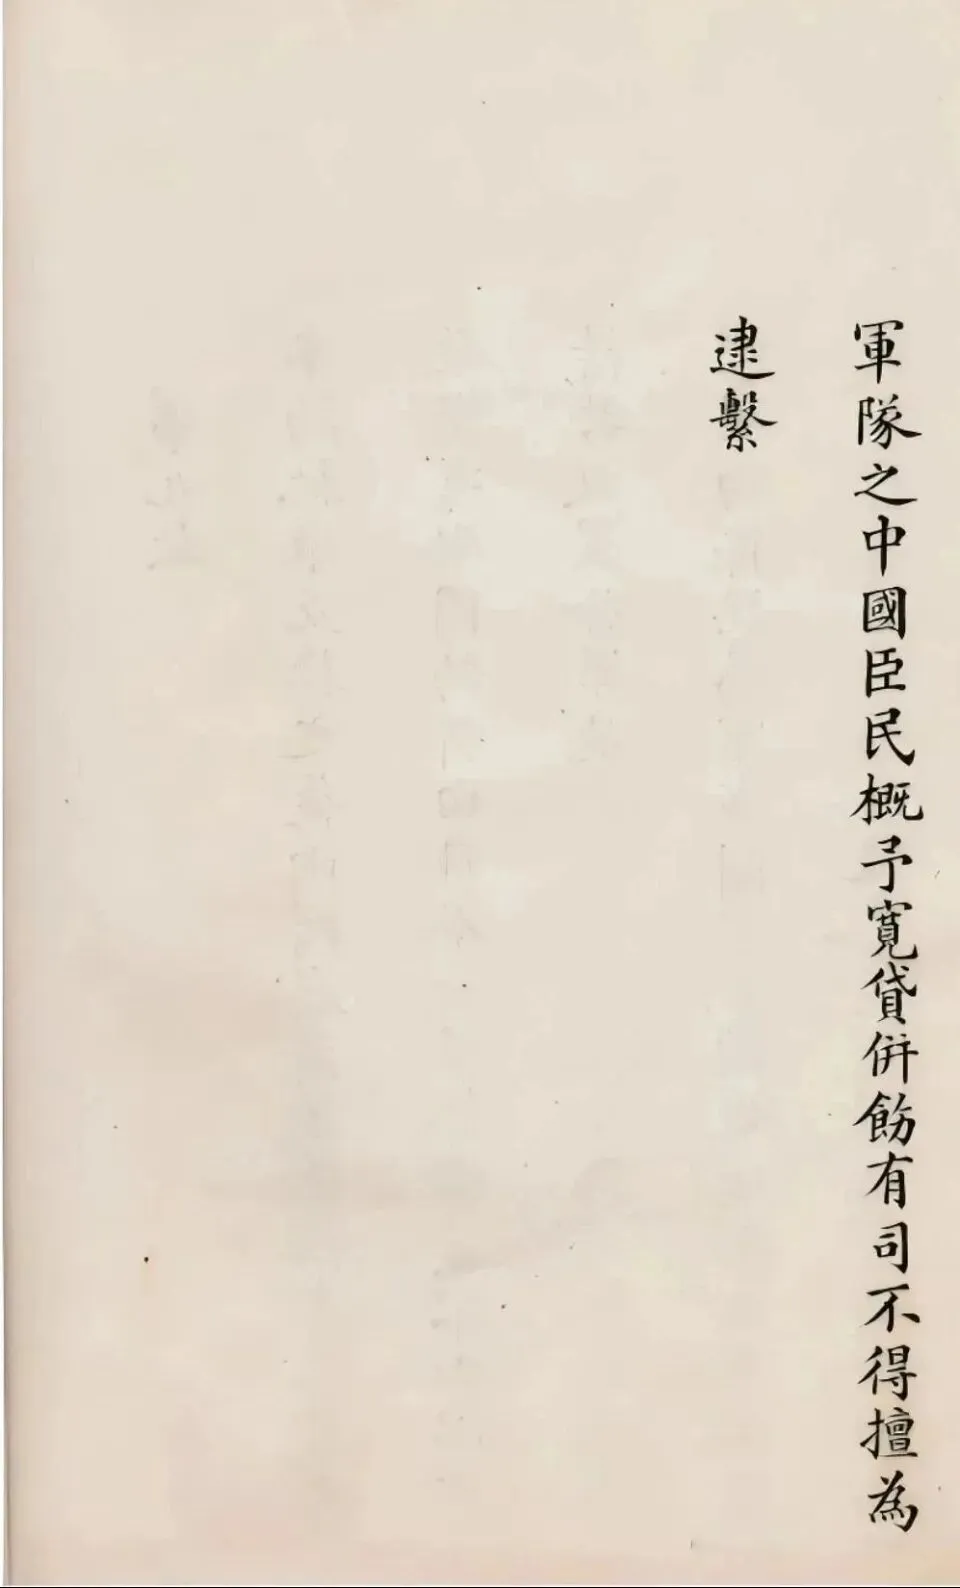 軍隊之中國臣民概予寬貸併飭有司不得擅為
逮繫